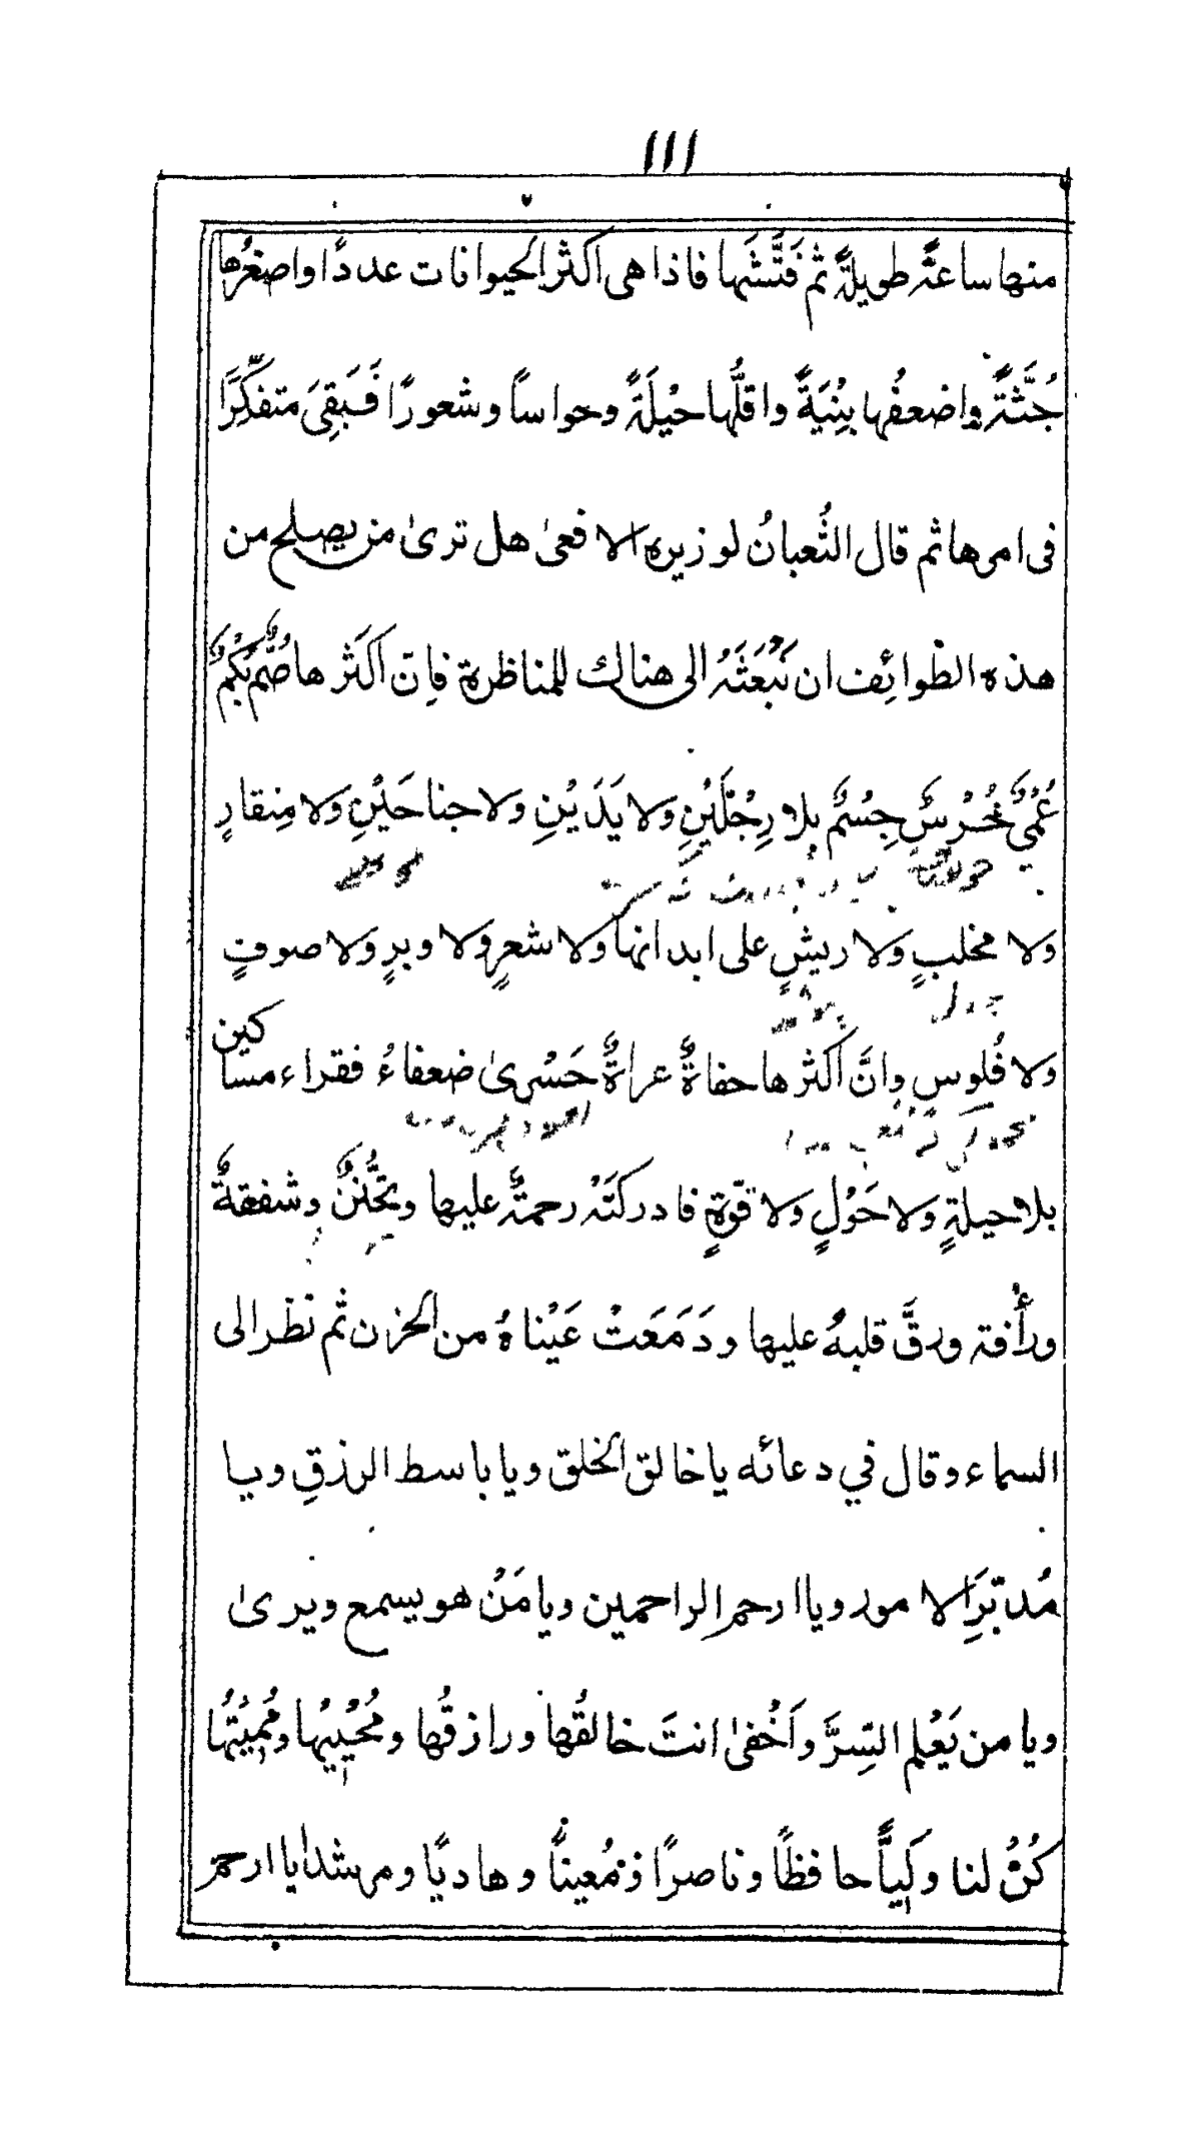 ١١١
منها ساعةً طويلةً ثم فَتَّشَها فاذا هى اكثر الحيوانات عددًا واصغرُها
جُثَّتةً واضعفُها بِنْيَةً واقلُّها حيْلَةً وحواساً وشعورًا فَبَقِىَ متفكِّرًا
فى امرها ثم قال الثُعبانُ لوزيره الافعىٰ هل ترىٰ من يصلح من
هذه الطوائِف ان نَبْعَثَہُ الى هناك للمناظرة فاِنّ اكَثَر ها صُمٌّ بُكْمٌ
عُمْيٌ خُرْسٌ جِسْمٌ بلا رِجْلَيْنِ ولا يَدَيْنِ ولا جناحَيْنِ ولا مِنقارٍ
ولا مخلبٍ ولا ريشٍ على ابدانها ولا شعرٍ ولا وبرٍ ولا صوفٍ
ولا فُلوسٍ وانَّ اكثر ها حفاةٌ عراةٌ حَسْرىٰ ضعفاءُ فقراء مساكين
بلا حيلةٍ ولا حَوْلٍ ولا قوّةٍ فادركتَہْ رحمةٌ عليها وتحنُّنٌ وشفقةٌ
ورأفة ورقَّ قلبهُ عليها ودَمَعَتْ عَيْناهُ من الحزن ثم نظر الى
السماء وقال في دعائه يا خالق الخلق ويا باسط الرزقِ ويا
مُدبّرَ الامور ويا ارحم الراحمين ويا مَنْ هو يسمع ويرىٰ
ويا من يَعْلم السِّرَّ واَخْفىٰ انتَ خالقُها ورازقُها ومُحْيِيها ومُميتُها
كُنْ لنا وَلِيًّا حافظًا وناصرًا ومُعينًا وهاديًا ومرشدًا يا ارحم